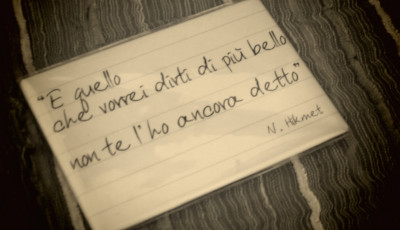 "E quello
che vorrei dirti di più bello
non te l'ho ancora detto"
N. Hikmet